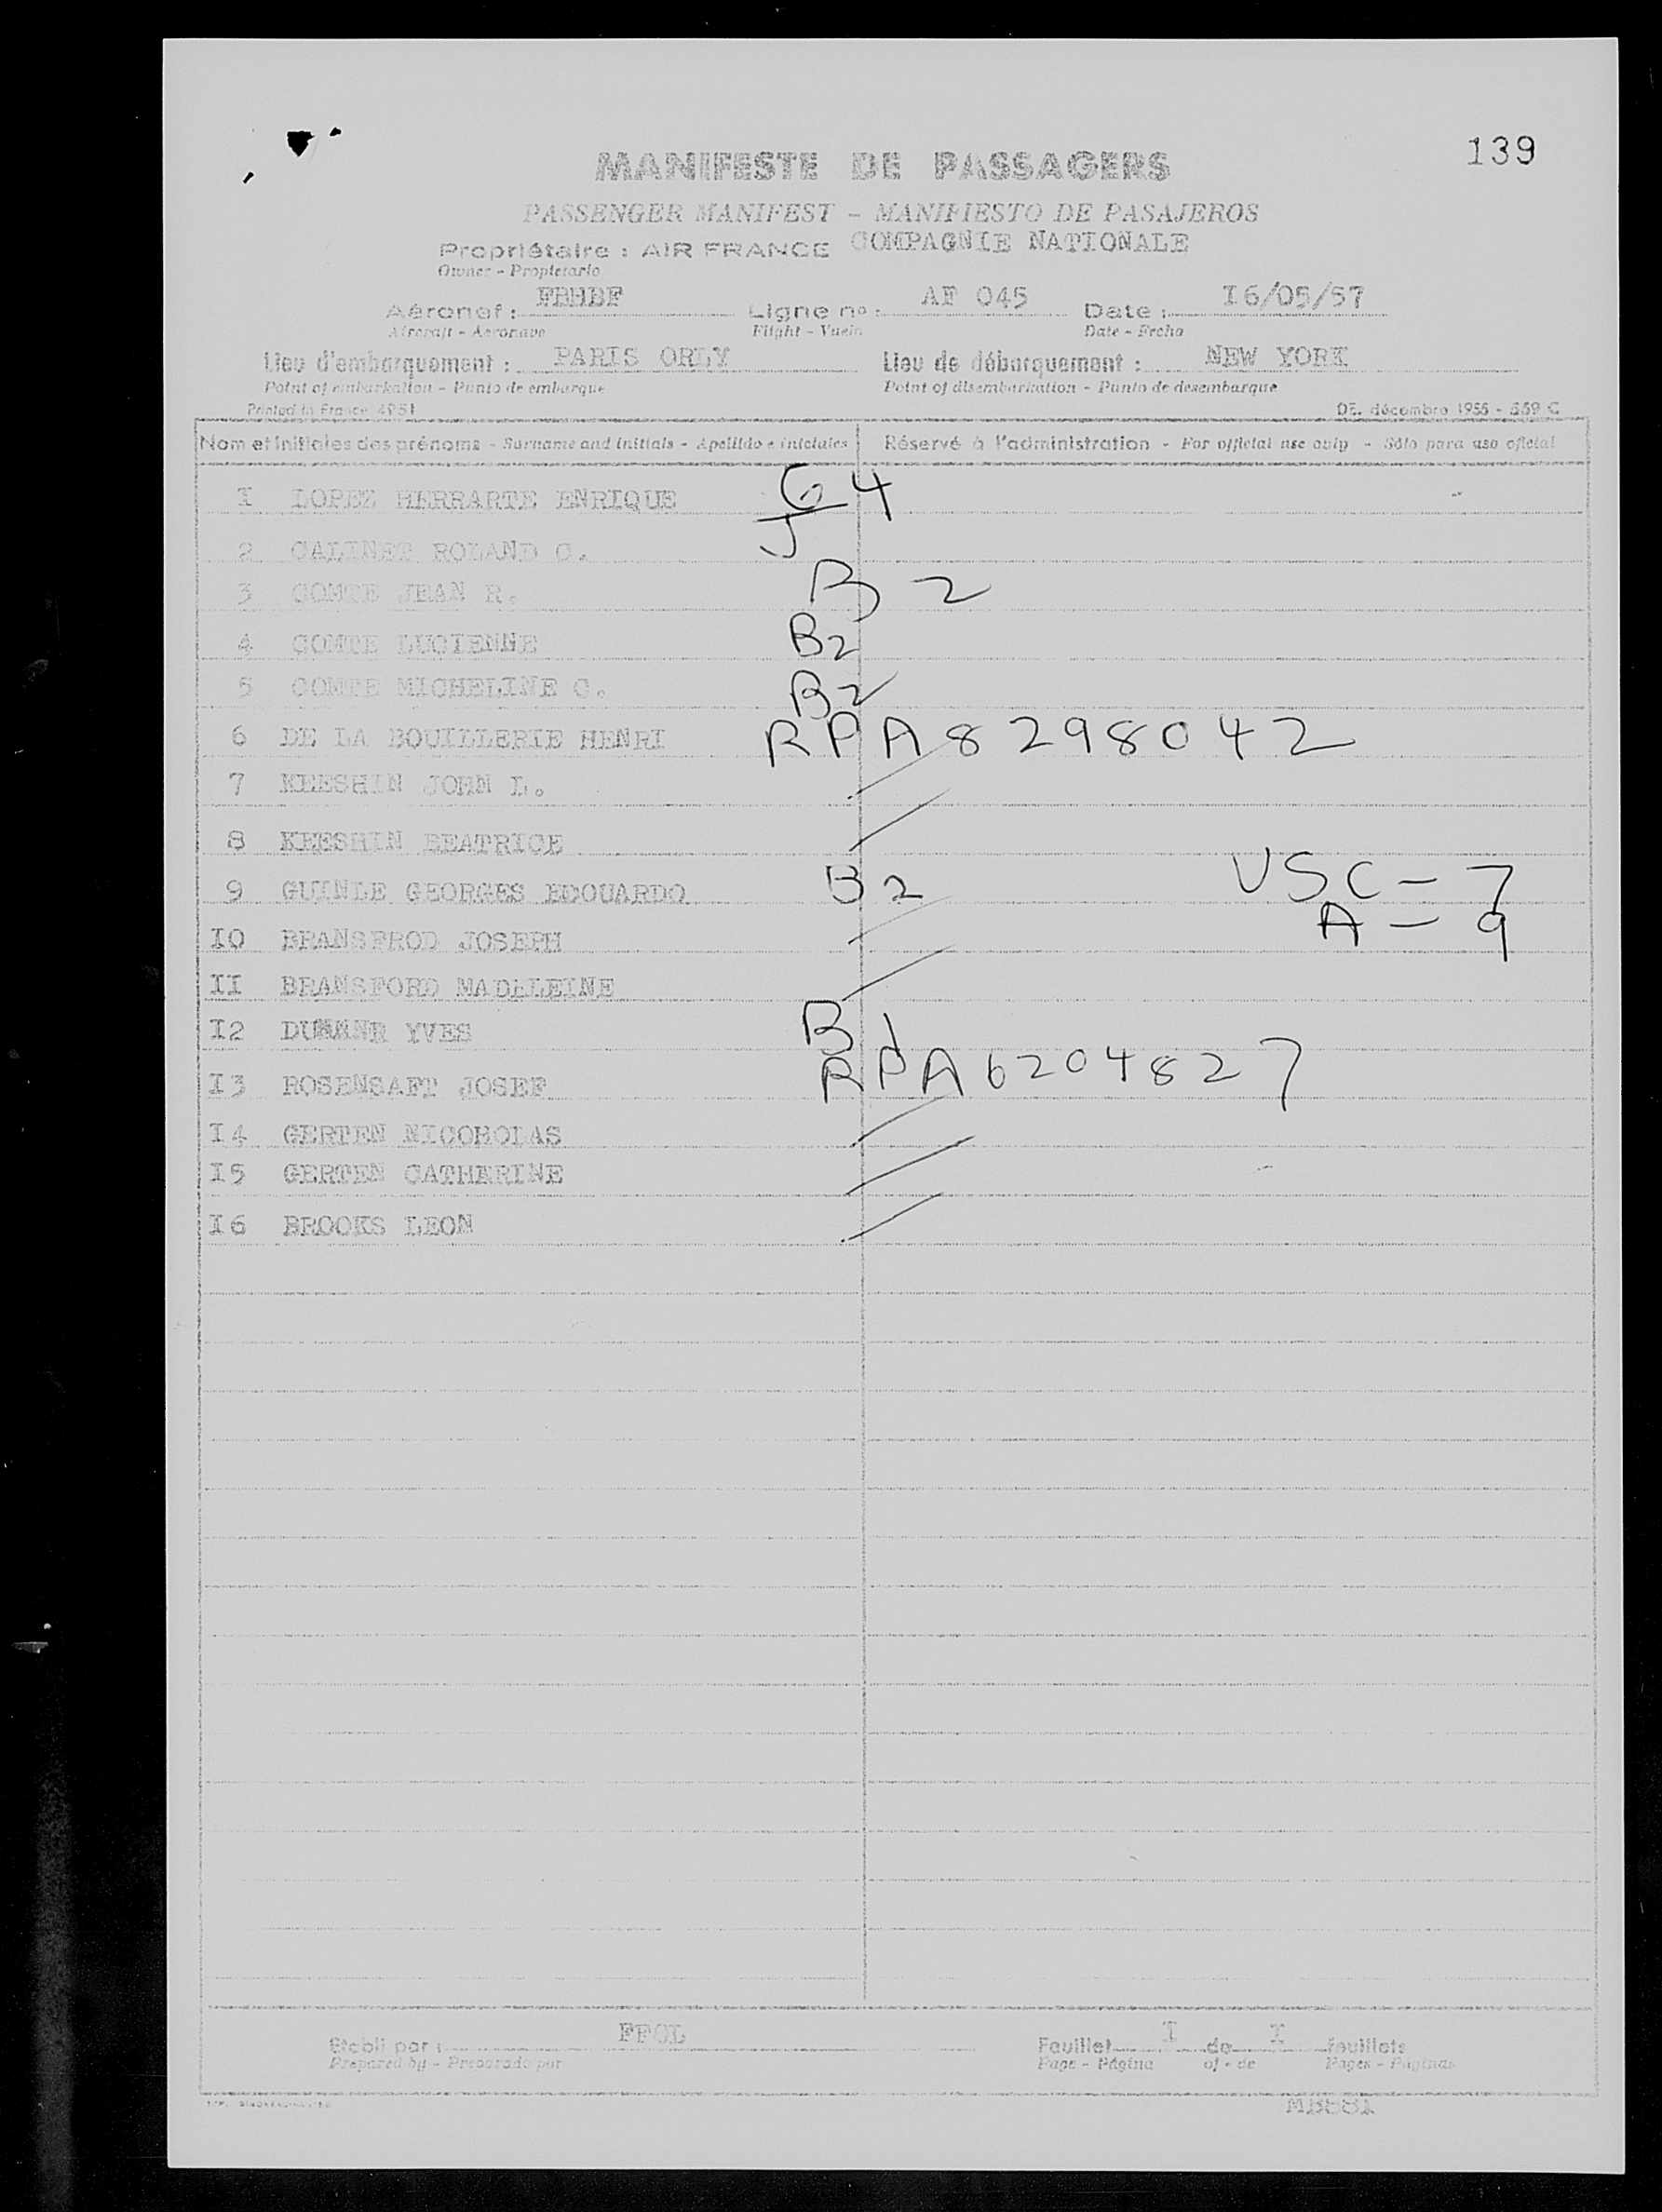 139
MANIFESTE DE PASSAGERS
PASSENGER MANIFEST - MANIFIESTO DE PASAJEROS
Propriétaire : AIR FRANCE COMPAGNIE NATIONALE
Owner - Propietario
Aéronef : FBHBF Ligne no : AF 045 Date : I6/05/57
Aircraft - Aeronave Flight - Vuelo Date - Fecha
Lieu d'embarquement : PARIS ORLY Lieu de débarquement : NEW YORK
Point of embarkation - Punto de embarque Point of disembarkation - Punto de desembarque
Printed in France 4951 DE. décembre 1955 - 559 C
Nom et initiales des prénoms - Surname and initials - Apellido e iniciales Réservé à l'administration - For official use only - Sólo para uso oficial
I LOPEZ HERRARTE ENRIQUE G4
2 CALINET ROLAND C. J
3 COMTE JEAN R. B2
4 COMTE LUCIENNE B2
5 COMTE MICHELINE C. B2
6 DE LA BOUILLERIE HENRI RPA8298042
7 KEESHIN JOHN L.
8 KEESHIN BEATRICE
9 GUINLE GEORGES EDOUARDO B2 USC - 7
A - 9
I0 BRANSFROD JOSEPH
II BRANSFORD MADELEINE
I2 YVES B1
I3 ROSENSAFT JOSEF RPA6204827
I4 GERTEN NICOHOLAS
I5 GERTEN CATHERINE
I6 BROOKS LEON
Etabli par : FFOL Feuillet I de I feuillets
Prepared by - Preparado por Page - Página of - de Pages - Páginas